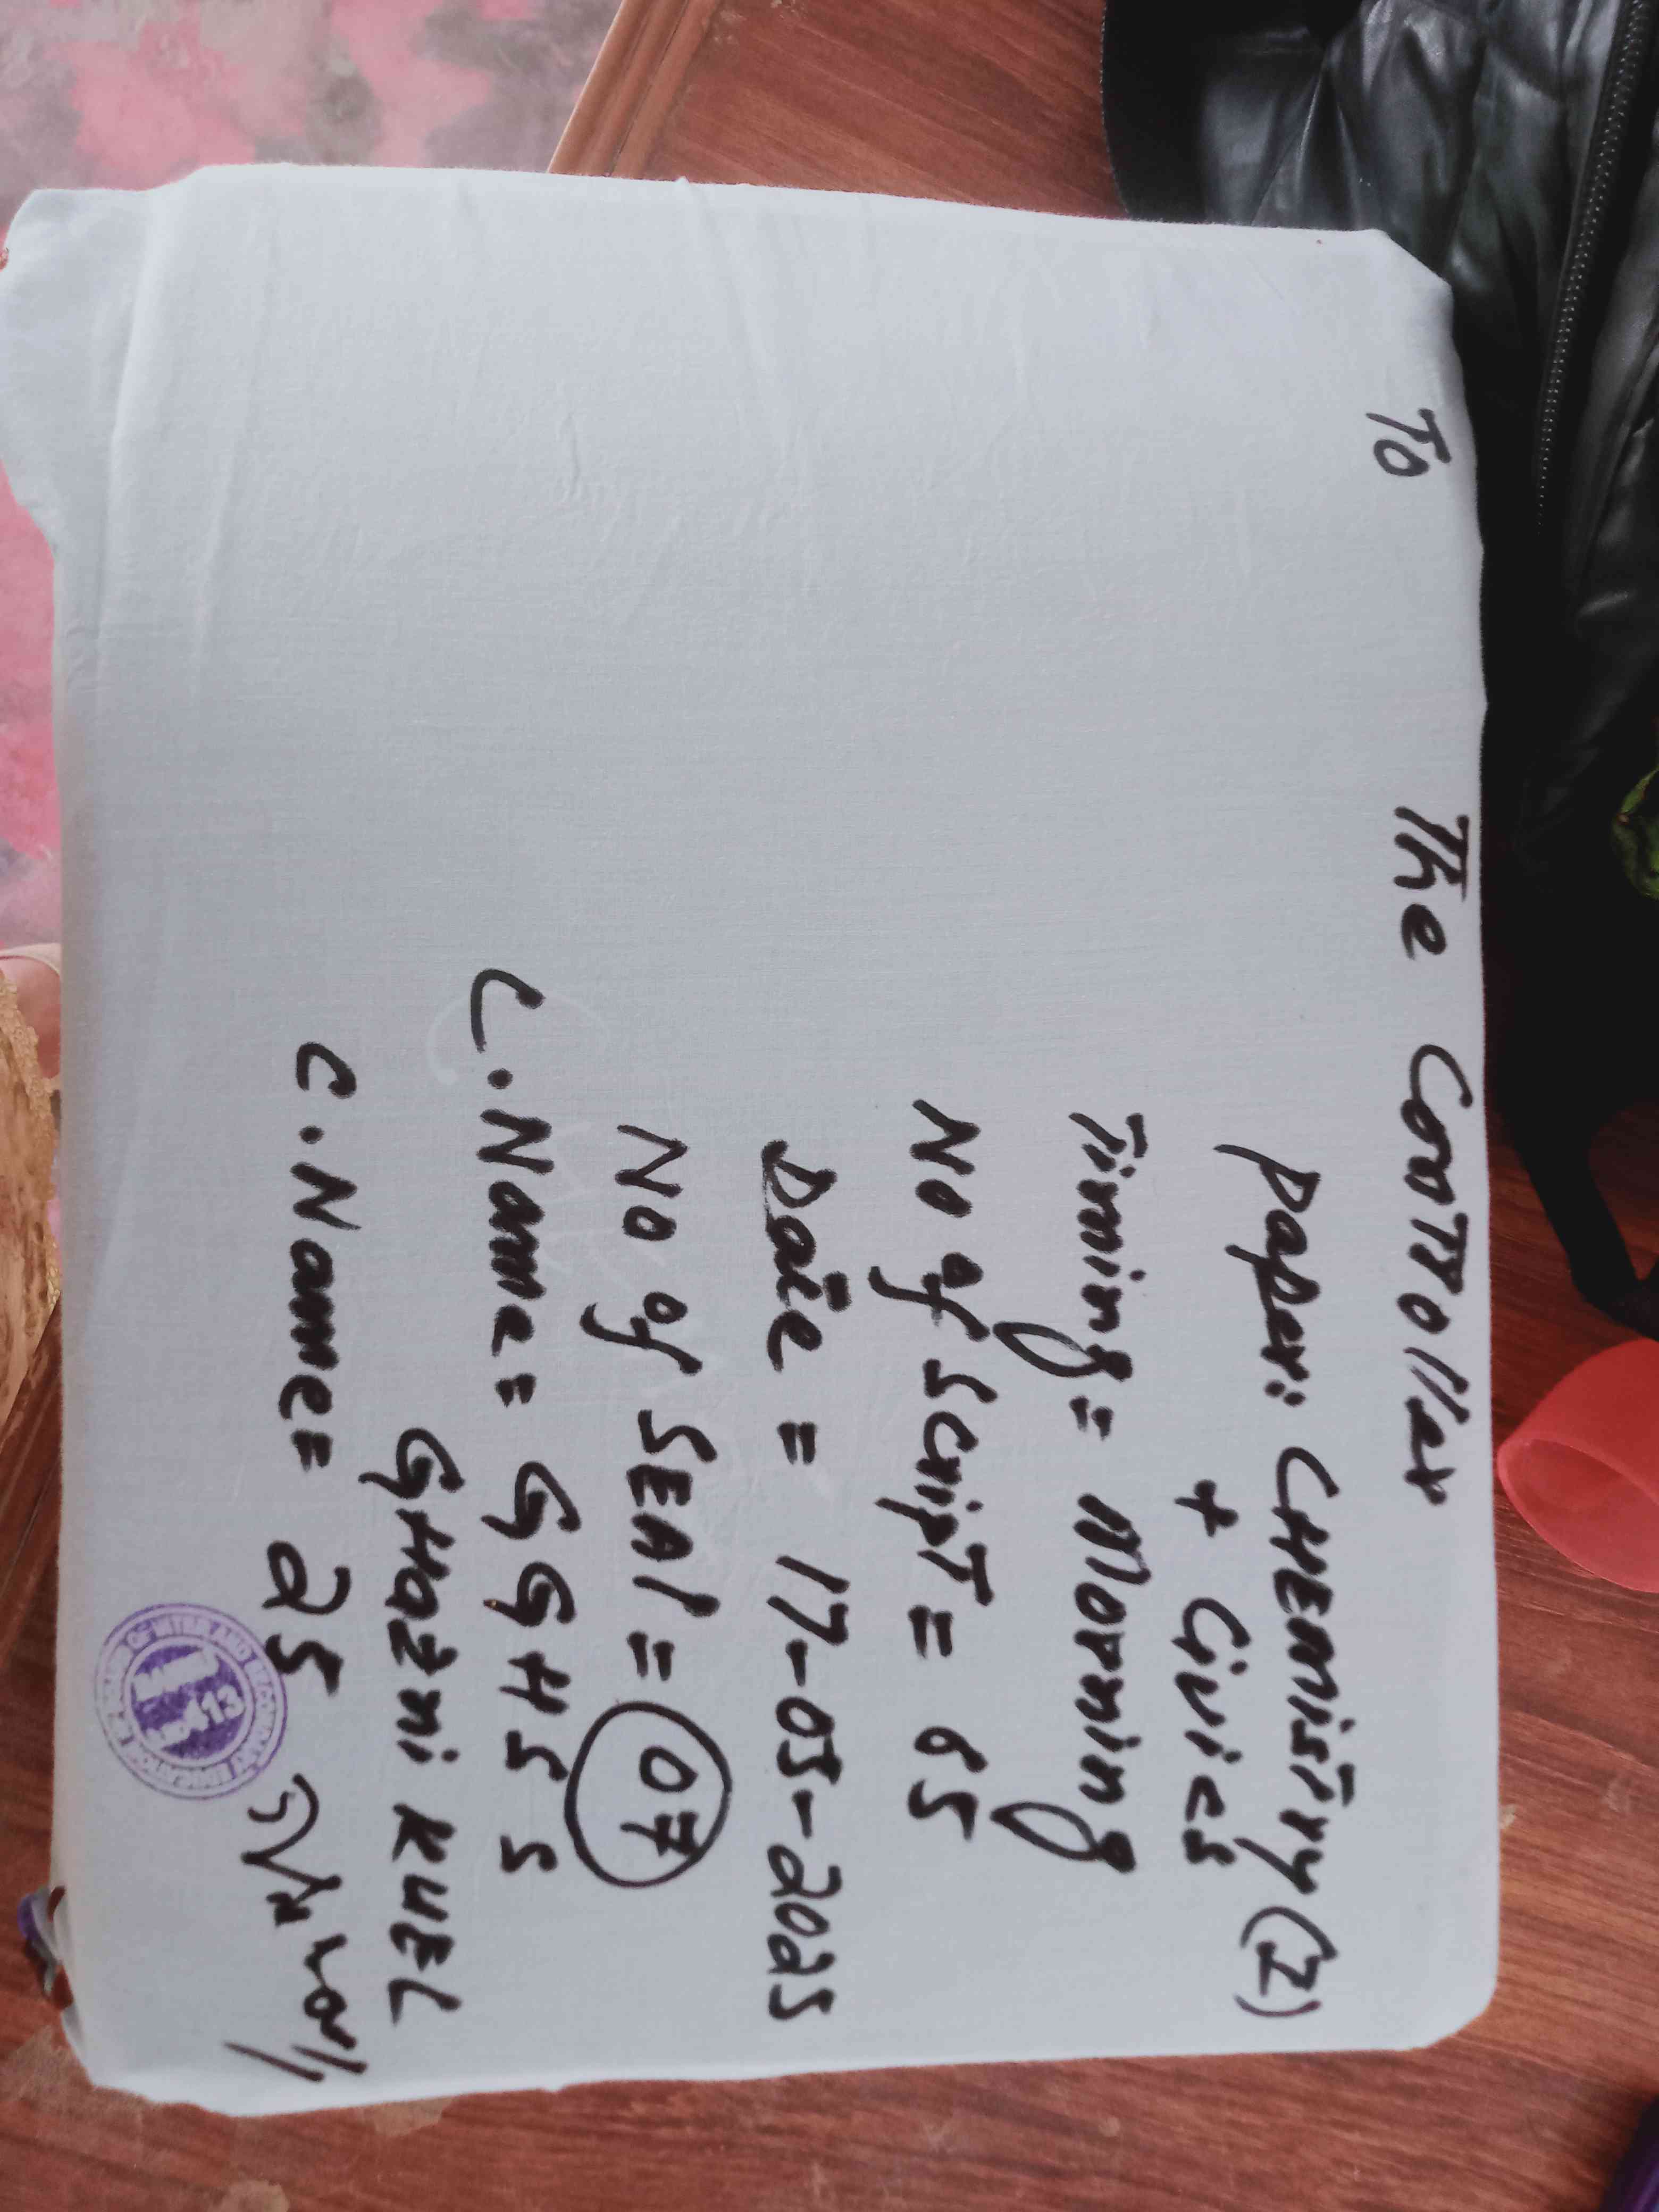 To The Conttoller
Paper: CHEmisTry (I)
+ Civics
Timing = Morning
No of Script = 65
Date = 17-05-2025
No of SEAl = 07
C.Name = GGHSS
GHazni KHEL
C.Name = 25